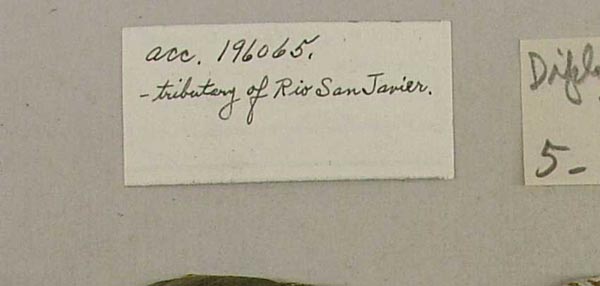 acc. 196065.
- tributary of Rio San Javier.
5-